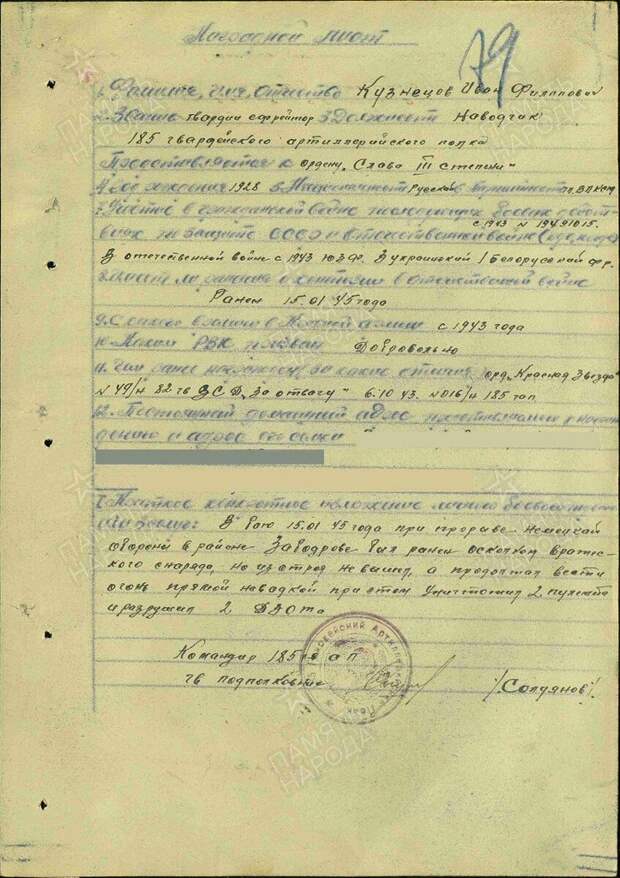 Наградной лист
79
1. Фамилия, имя, отчество Кузнецов Иван Филиппович
2. Звание гвардии ефрейтор 3. Должность Наводчик
185 гвардейского артиллерийского полка
Представляется к ордену „Слава III степени"
4. Год рождения 1928 5. Национальность Русский 6. Партийность чл. ВЛКСМ
7. Участие в гражданской войне, последующих боевых действ-
с 1943 N 19431015.
иях по защите СССР и отечественной войне
В отечественной войне с 1943 ЮЗФ, 3 украинский 1 Белорусский фр.
8. Имеет ли ранения и контузии в отечественной войне
Ранен 15.01 45 года
9. С какого времени в Красной армии с 1943 года
10. Каким РВК призван Добровольно
11. Чем ранее награжден, за какие отличия орд. „Красная Звезда"
N 49/н 82 гв ЗСД, „За отвагу" 6.10 43. N 016/н 185 гап
12. Постоянный домашний адрес представляемого к награж-
дению и адрес его семьи
Краткое конкретное изложение личного боевого
В бою 15.01 45 года при прорыве немецкой
обороны в районе был ранен осколком вражес-
кого снаряда, но из строя не вышел, а продолжал вести
огонь прямой наводкой при этом уничтожил 2 пулемета
и разрушил 2 ДЗОТа
Командир 185 гв а п
гв подполковник /Солдянов/
ПАМЯТЬ
НАРОДА